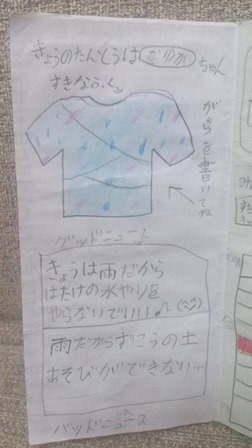 きょうのたんとうはなのかちゃん
すきなふく
がらを書いてね
グッドニュース
きょうは雨だから
はたけの水やりを
やらないでいい♪(^^)
雨だからずこうの土
あそびができない…
バッドニュース